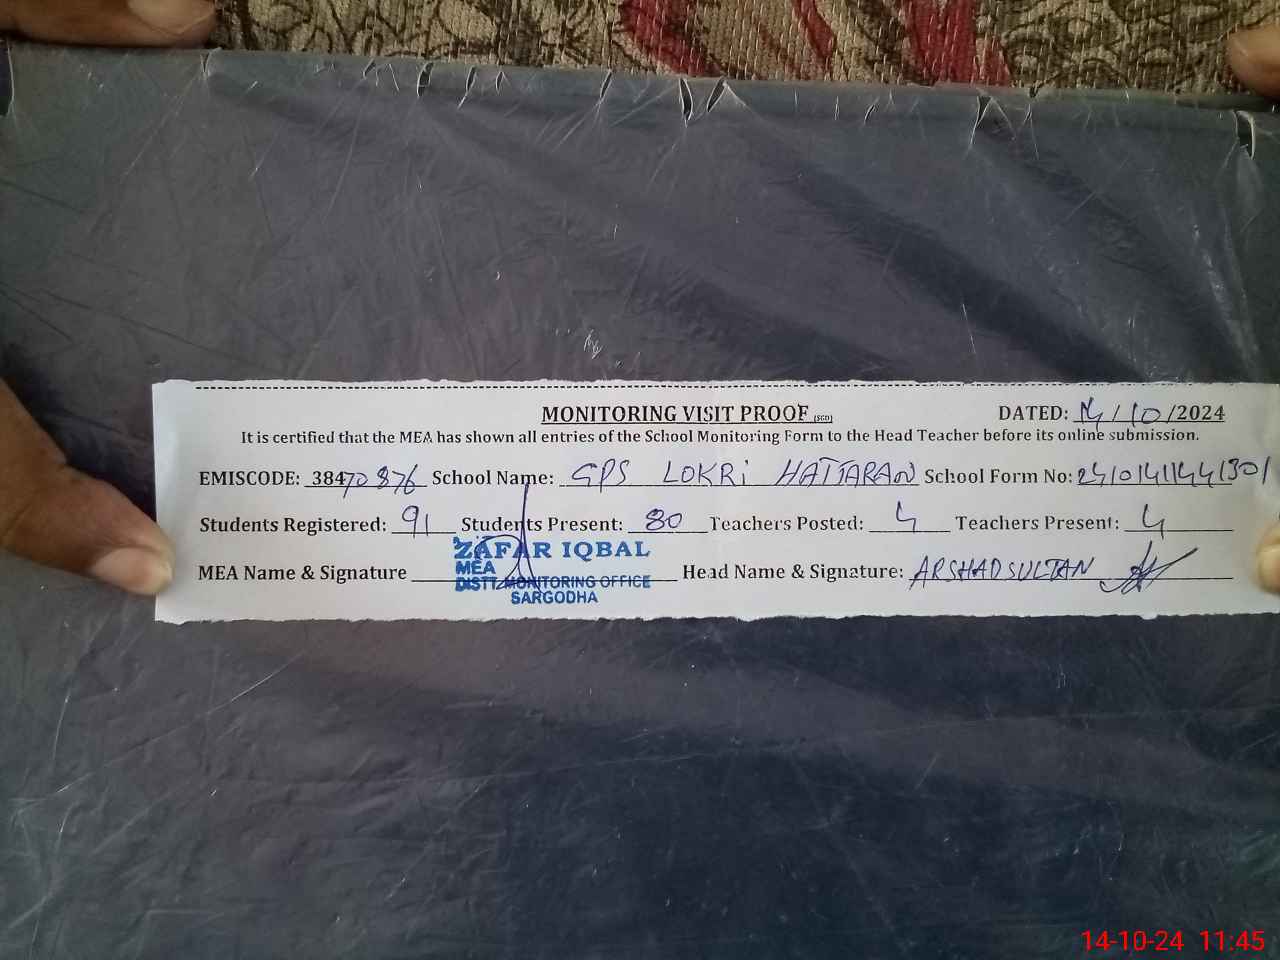 MONITORING VISIT PROOF (SGD) DATED: 14/10/2024
It is certified that the MEA has shown all entries of the School Monitoring Form to the Head Teacher before its online submission.
EMISCODE: 38470876 School Name: GPS LOKRi HATTARAN School Form No:
Students Registered: 91 Students Present: 80 Teachers Posted: 4 Teachers Present: 4
MEA Name & Signature ZAFAR IQBAL Head Name & Signature: ARSHAD SULTAN
MEA
DISTT. MONITORING OFFICE
SARGODHA
14-10-24 11:45